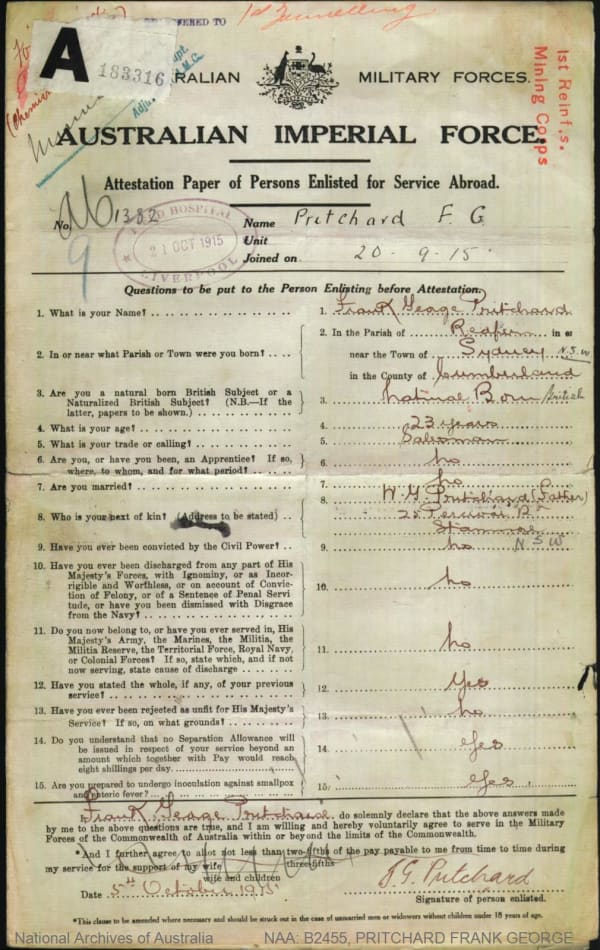 DELIVERED TO
1st Tunnelling
A
183316
AUSTRALIAN MILITARY FORCES.
1st Reinf.s.
Mining Corps
AUSTRALIAN IMPERIAL FORCE.
Attestation Paper of Persons Enlisted for Service Abroad.
No. 1382
FIELD HOSPITAL
21 OCT 1915
LIVERPOOL
9
Name Pritchard F. G.
Unit
Joined on 20-9-15.
Questions to be put to the Person Enlisting before Attestation.
1. What is your Name?
1. Frank George Pritchard
2. In or near what Parish or Town were you born?
2. In the Parish of Redfern in or
near the Town of Sydney N.S.W
in the County of Cumberland
3. Are you a natural born British Subject or a
Naturalized British Subject? (N.B.—If the
latter, papers to be shown.)
3. Natural Born British
4. What is your age?
4. 23 years
5. What is your trade or calling?
5. Salesman
6. Are you, or have you been, an Apprentice? If so,
where, to whom, and for what period?
6. no
7. Are you married?
7. no
8. Who is your next of kin? (Address to be stated)
8. W. G. Pritchard (Father)
25 Percival St
Stanmore
N S W
9. Have you ever been convicted by the Civil Power?
9. no
10. Have you ever been discharged from any part of His
Majesty's Forces, with Ignominy, or as Incor-
rigible and Worthless, or on account of Convic-
tion of Felony, or of a Sentence of Penal Servi
tude, or have you been dismissed with Disgrace
from the Navy?
10. no
11. Do you now belong to, or have you ever served in, His
Majesty's Army, the Marines, the Militia, the
Militia Reserve, the Territorial Force, Royal Navy,
or Colonial Forces? If so, state which, and if not
now serving, state cause of discharge
11. no
12. Have you stated the whole, if any, of your previous
service?
12. Yes
13. Have you ever been rejected as unfit for His Majesty's
Service? If so, on what grounds?
13. no
14. Do you understand that no Separation Allowance will
be issued in respect of your service beyond an
amount which together with Pay would reach
eight shillings per day.
14. Yes
15. Are you prepared to undergo inoculation against smallpox
and enteric fever?
15. Yes.
I, Frank George Pritchard do solemnly declare that the above answers made
by me to the above questions are true, and I am willing and hereby voluntarily agree to serve in the Military
Forces of the Commonwealth of Australia within or beyond the limits of the Commonwealth.
*And I further agree to allot not less than two-fifths of the pay payable to me from time to time during
three-fifths
my service for the support of my wife
wife and children
Date 5th October 1915
F G Pritchard
Signature of person enlisted.
*This clause to be amended where necessary and should be struck out in the case of unmarried men or widowers without children under 18 years of age.
National Archives of Australia NAA: B2455, PRITCHARD FRANK GEORGE